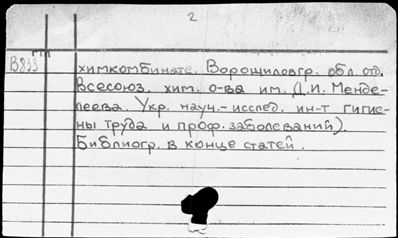 2
химкомбинате. Ворошиловгр. обл. отд.
Всесоюз. хим. о-ва им. Д.И. Менде-
леева. Укр. науч.-исслед. ин-т гигие-
ны труда и проф. заболеваний).
Библиогр. в конце статей.